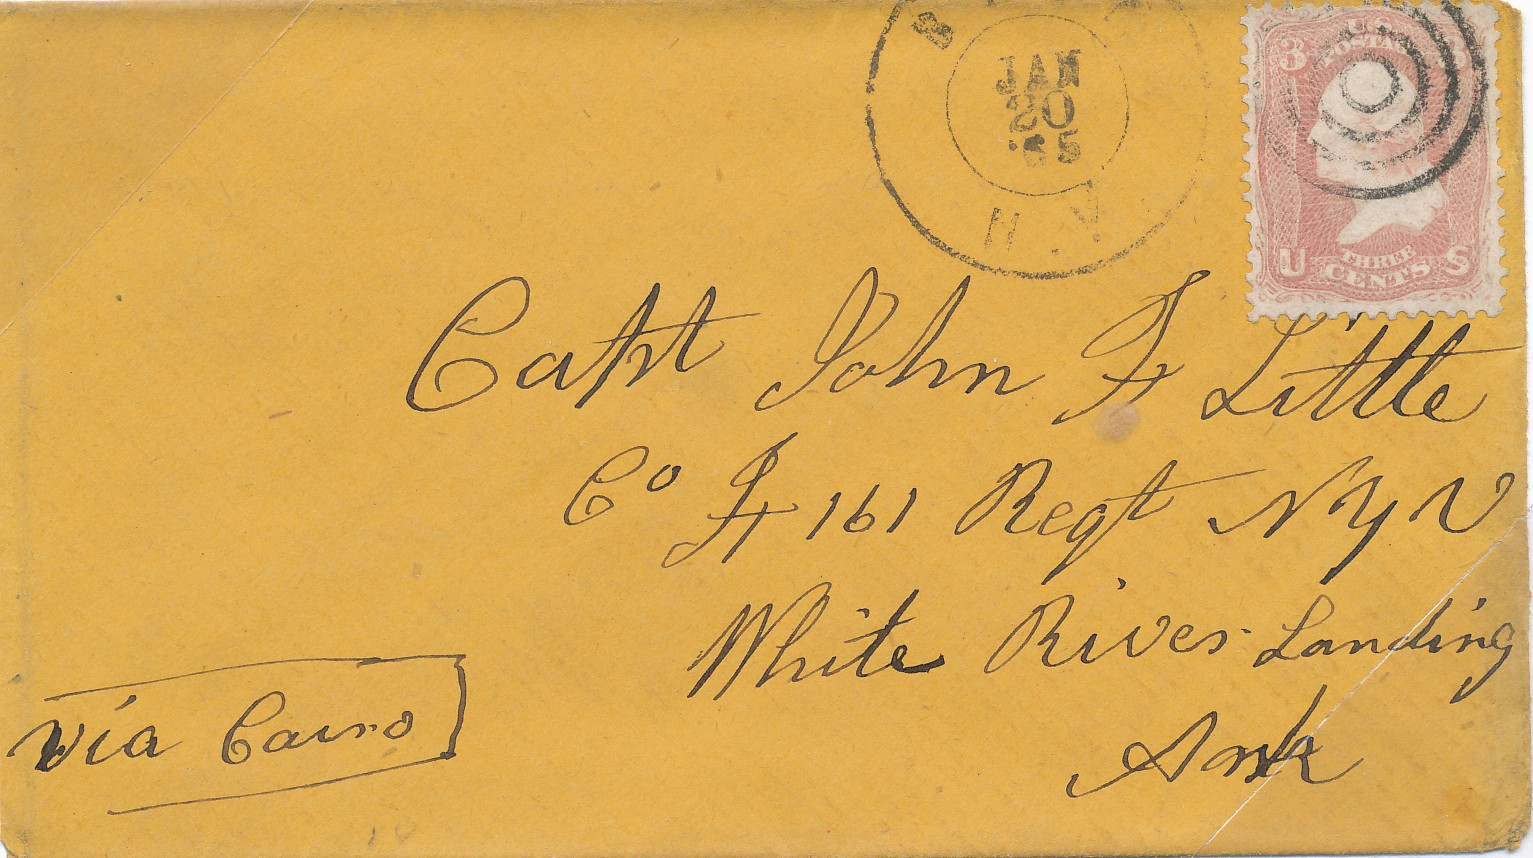 JAN
20
'65
N.Y.
3
U.S.
POSTAGE
U THREE CENTS S
Capt John F Little
Co F 161 Regt N Y V
White River Landing
Ark
via Cairo